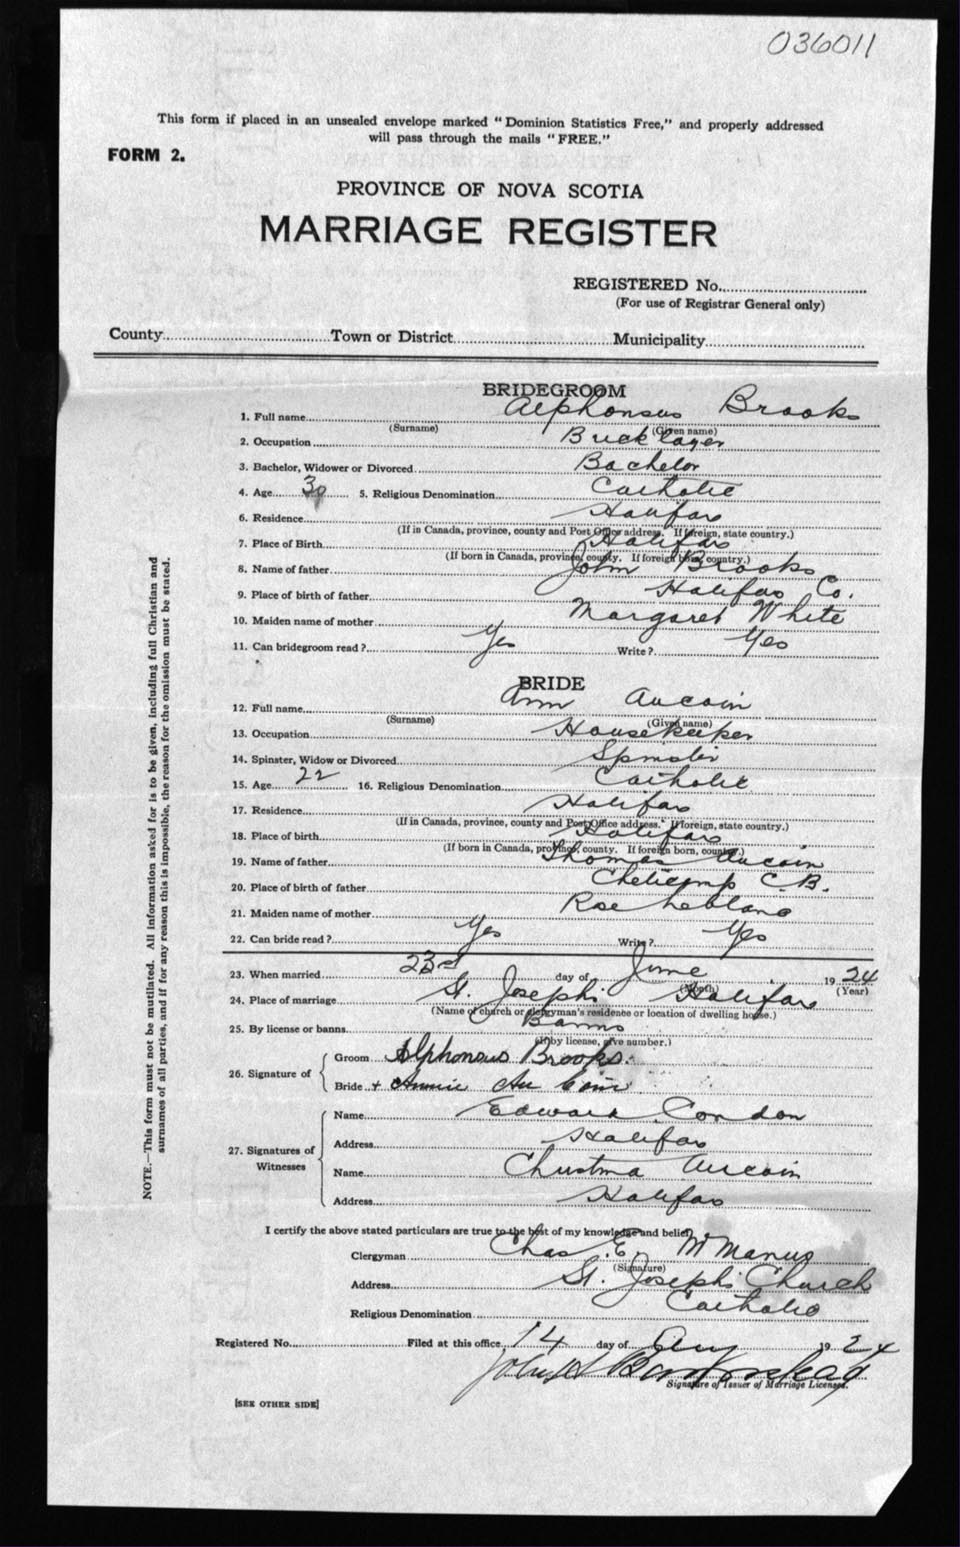 036011
This form if placed in an unsealed envelope marked "Dominion Statistics Free," and properly addressed
will pass through the mails "FREE."
FORM 2.
PROVINCE OF NOVA SCOTIA
MARRIAGE REGISTER
REGISTERED No.
(For use of Registrar General only)
County Town or District Municipality
BRIDEGROOM
1. Full name Alphonsus Brooks
(Surname) (Given name)
2. Occupation Bricklayer
3. Bachelor, Widower or Divorced Bachelor
4. Age 30 5. Religious Denomination Catholic
6. Residence Halifax
(If in Canada, province, county and Post Office address. If foreign, state country.)
7. Place of Birth Halifax
(If born in Canada, province, county. If foreign born, country.)
8. Name of father John Brooks
9. Place of birth of father Halifax Co.
10. Maiden name of mother Margaret White
11. Can bridegroom read? Yes Write? Yes
BRIDE
12. Full name Ann Aucoin
(Surname) (Given name)
13. Occupation Housekeeper
14. Spinster, Widow or Divorced Spinster
15. Age 22 16. Religious Denomination Catholic
17. Residence Halifax
(If in Canada, province, county and Post Office address. If foreign, state country.)
18. Place of birth Halifax
(If born in Canada, province, county. If foreign born, country.)
19. Name of father Thomas Aucoin
20. Place of birth of father Cheticamp C.B.
21. Maiden name of mother Rose Leblanc
22. Can bride read? Yes Write? Yes
23. When married 23rd day of June 1924
(Month) (Year)
24. Place of marriage St. Josephs Halifax
(Name of church or clergyman's residence or location of dwelling house.)
25. By license or banns Banns
(If by license, give number.)
26. Signature of
Groom Alphonsus Brooks.
Bride + Annie Au Coin
27. Signatures of Witnesses
Name Edward Condon
Address Halifax
Name Christina Aucoin
Address Halifax
I certify the above stated particulars are true to the best of my knowledge and belief.
Clergyman Chas. E. McManus
(Signature)
Address St. Josephs Church
Religious Denomination Catholic
Registered No. Filed at this office 14 day of Aug 1924
Signature of Issuer of Marriage Licenses.
[SEE OTHER SIDE]
NOTE.—This form must not be mutilated. All information asked for is to be given, including full Christian and
surnames of all parties, and if for any reason this is impossible, the reason for the omission must be stated.